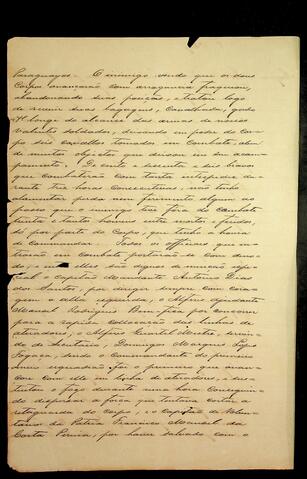 Paraguayos. O inimigo vendo que os dous
Corpos avançavão com arrogancia fraquejou,
abandonando suas posições, e tratou logo
de reunir suas bagagens, Cavalhada, gado
ao longe do alcance das armas de nossos
valentes soldados, deixando em poder do Cor-
po seis cavallos tomados em Combate, alem
de muitos objectos que deixou em seu acam-
pamento. De oitenta e sessenta e dois bravos
que combaterão com tanta intrepidez du-
rante tres horas Consecutivas, não tenho
a lamentar perda nem ferimento algum, ao
passo que o inimigo teve fora do Combate
trinta e tantos homens entre mortos e feridos
só por parte do Corpo, que tenho a honra
de Commandar. Todos os officiaes que en-
trarão em Combate portarão-se com denodo;
e entre elles são dignos de menção espe-
cial o Capitão Mandante Antonio Dias
dos Santos, por dirigir sempre com cora-
gem a ala esquerda; o Alferes Ajudante
Manoel Rodrigues Bemfica por concorrer
para a rapida collocação da linha de
atiradores; o Alferes Quartel Mestre, servin-
do de Secretario, Domingos Marques Lopes
Fogaça, sendo o Commandante do primeiro
meio esquadrão foi o primeiro que avan-
çou com elle em linha de atiradores, e sus-
tentou o fogo durante uma hora Conseguin-
do dispersar a força que tentava cortar a
retaguarda do Corpo; e o Capitão de Volun-
tarios da Patria Francisco Manoel da
Costa Pereira, por haver salvado com o